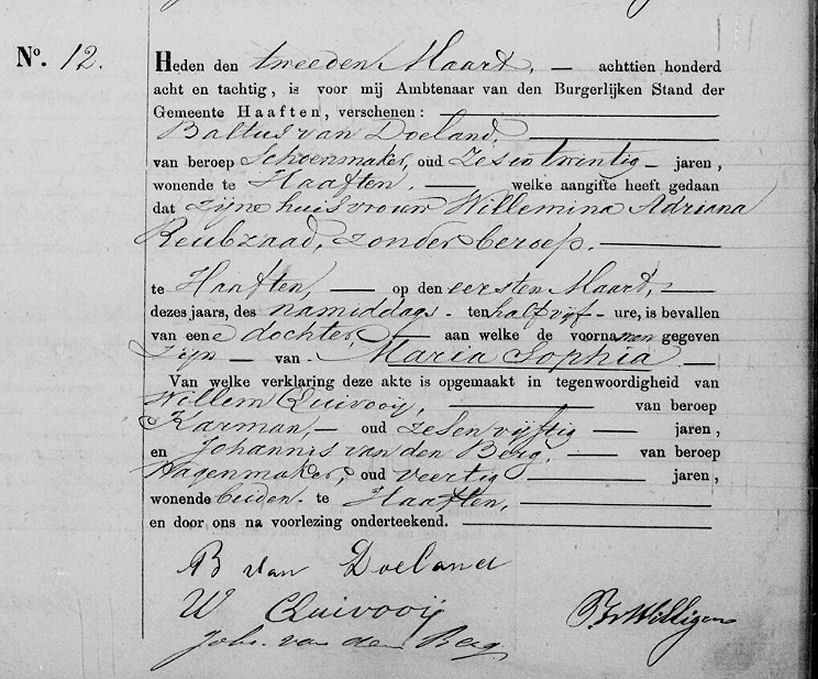 No. 12.
Heden den tweeden Maart, — achttien honderd
acht en tachtig, is voor mij Ambtenaar van den Burgerlijken Stand der
Gemeente Haaften, verschenen:
Baltus van Doeland,
van beroep Schoenmaker, oud zes en twintig — jaren,
wonende te Haaften. — welke aangifte heeft gedaan
dat zijne huisvrouw Willemina Adriana
Reubzaad, zonder beroep.
te Haaften, — op den eersten Maart, —
dezes jaars, des namiddags - ten half vijf - ure, is bevallen
van eene dochter — aan welke de voornamen gegeven
zijn — van - Maria Sophia —
Van welke verklaring deze akte is opgemaakt in tegenwoordigheid van
Willem Quivooij, — van beroep
Karman, — oud zes en vijftig — jaren,
en Johannis van den Berg. — van beroep
Wagenmaker, oud veertig — jaren,
wonende beiden. te Haaften,
en door ons na voorlezing onderteekend.
B van Doeland
W Quivooij
Johs. van den Berg
vWilligen